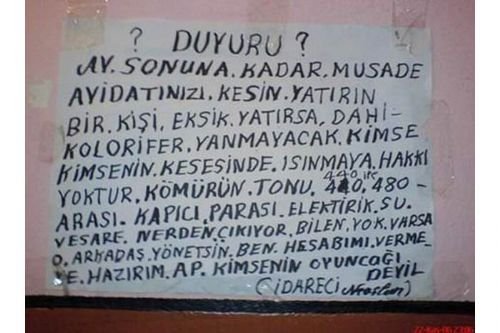 ? DUYURU ?
AY. SONUNA. KADAR. MUSADE
AYIDATINIZI. KESİN. YATIRIN
BİR. KİŞİ. EKSİK. YATIRSA. DAHİ-
KOLORİFER. YANMAYACAK. KİMSE
KİMSENİN. KESESİNDE. ISINMAYA. HAKKI
YOKTUR. KÖMÜRÜN. TONU. 440 ile 480-
ARASI. KAPICI. PARASI. ELEKTİRİK. SU.
VESARE. NERDEN. ÇIKIYOR. BİLEN. YOK. VARSA
O. ARKADAŞ. YÖNETSİN. BEN. HESABIMI. VERME-
YE. HAZIRIM. AP. KİMSENİN OYUNCAĞI
DEYİL
(İDARECİ